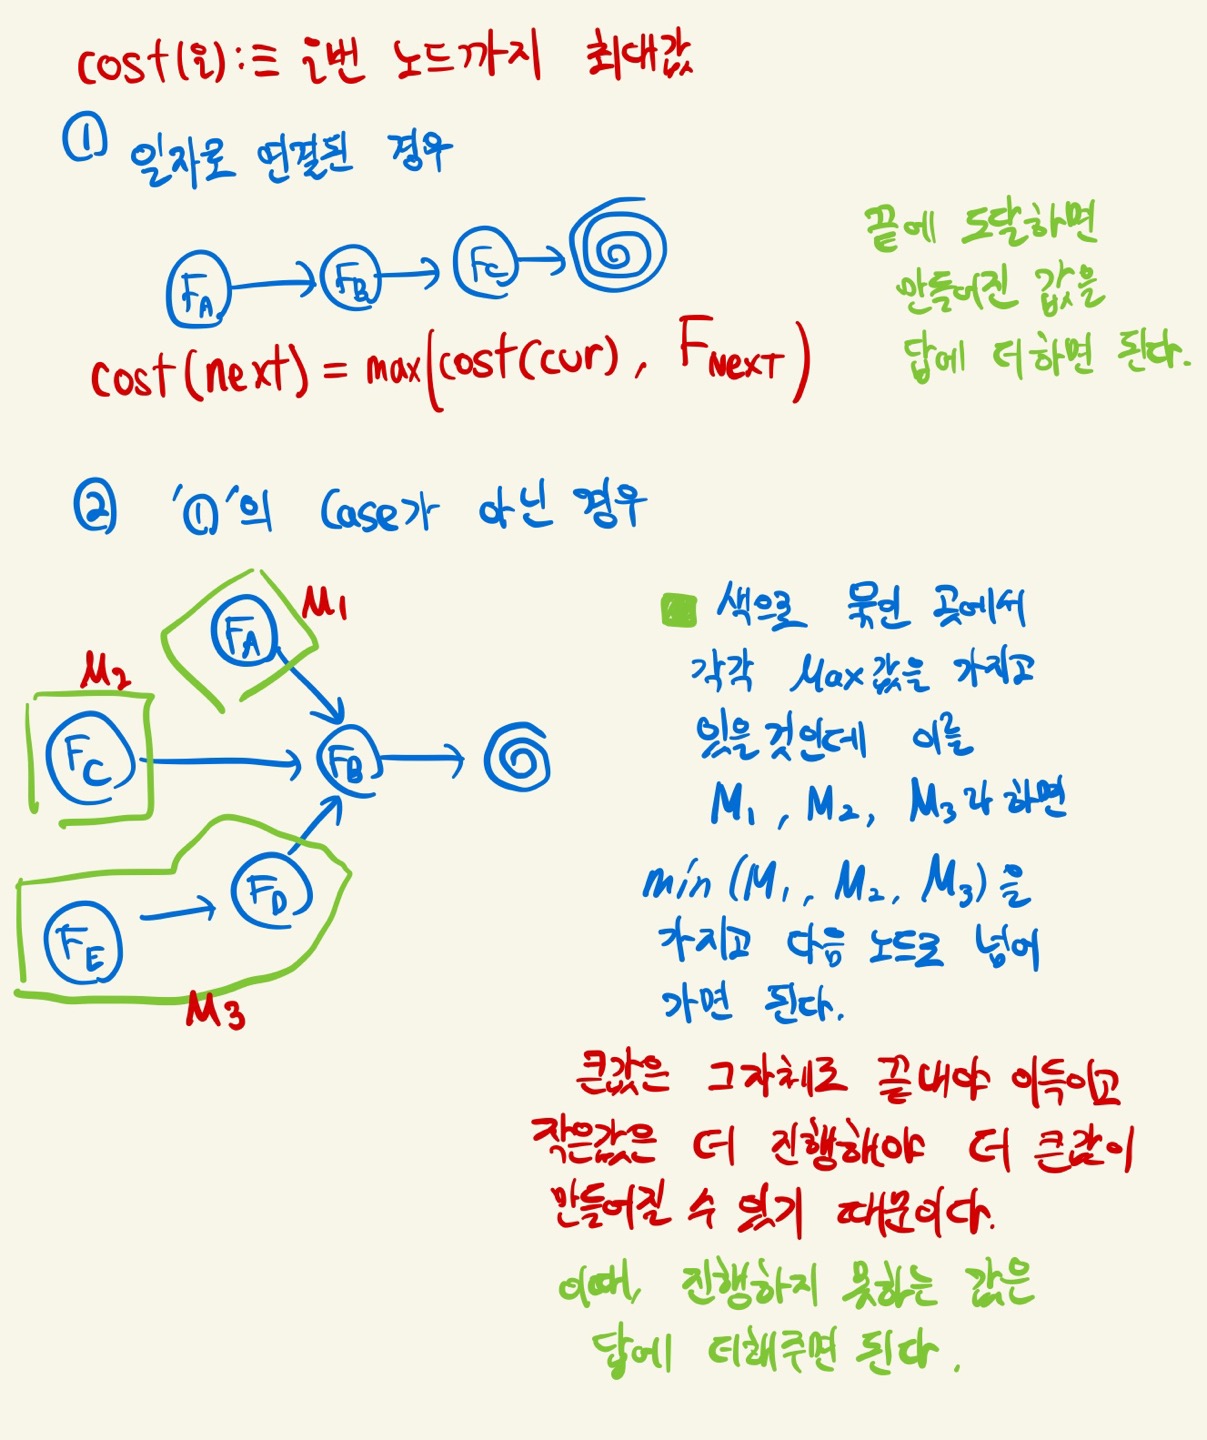 cost(i):≡ i번 노드까지 최대값
① 일자로 연결된 경우
F_A F_B F_C
끝에 도달하면
만들어진 값을
답에 더하면 된다.
cost(next) = max(cost(cur), F_NEXT)
② '①'의 Case가 아닌 경우
M₁
F_A
M₂
F_C
F_B
F_D
F_E
M₃
색으로 묶인 곳에서
각각 Max값을 가지고
있을것인데 이를
M₁, M₂, M₃라 하면
min (M₁, M₂, M₃)을
가지고 다음 노드로 넘어
가면 된다.
큰값은 그자체로 끝내야 이득이고
작은값은 더 진행해야 더 큰값이
만들어질 수 있기 때문이다.
이때, 진행하지 못하는 값은
답에 더해주면 된다.